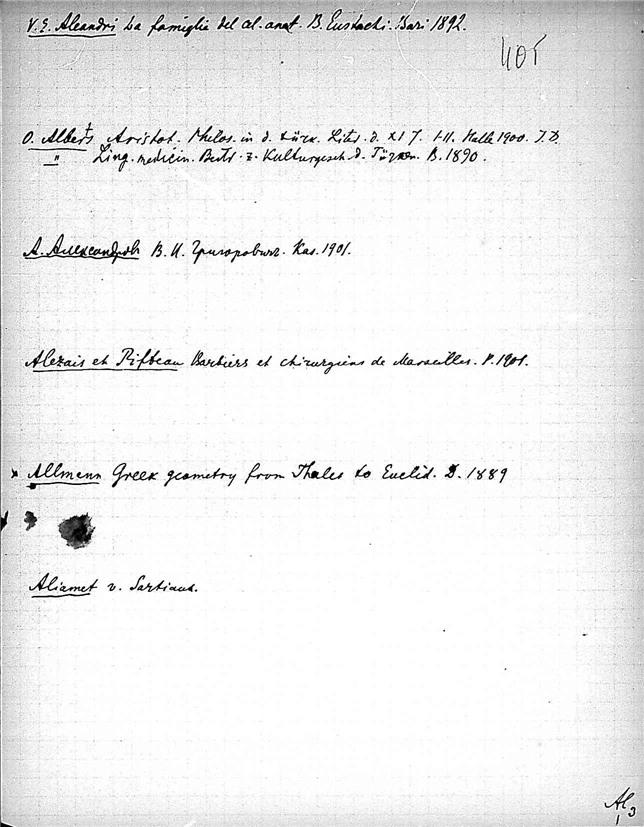 V.E. Aleandri La famiglia del cel. anat. B. Eustachi. Bari 1892.
405
O. Alberts Aristot. Philos. in d. türk. Liter. d. XI J. I-II. Halle 1900. J.D.
" Ling. medicin. Beitr. z. Kulturgesch. d. Türken. B. 1890.
А. Александровъ В. И. Григоровичъ. Каз. 1901.
Alezais et Barbiers et chirurgiens de Marseilles. P. 1901.
Allmenn Greek geometry from Thales to Euclid. D. 1889
Aliamet v.
Al